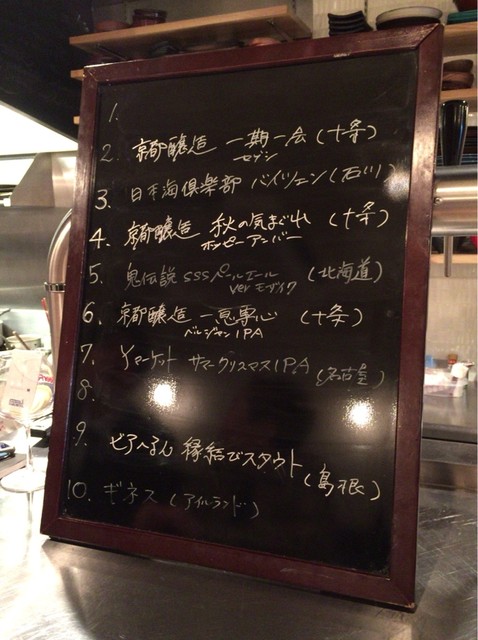 1.
2. 京都醸造 一期一会 (十条)
セゾン
3. 日本海倶楽部 バイツェン (石川)
4. 京都醸造 秋の気まぐれ (十条)
ホッピーアンバー
5. 鬼伝説 SSSペールエール (北海道)
verモザイク
6. 京都醸造 一意専心 (十条)
ベルジャンIPA
7. Yマーケット サマークリスマスIPA (名古屋)
8.
9. ビアへるん 縁結びスタウト (島根)
10. ギネス (アイルランド)